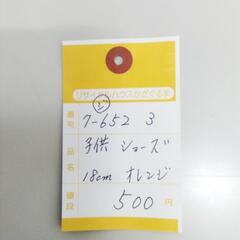 リサイクルハウスかざぐるま
ど
番号 7-652 3
品名 子供 シューズ
18cm オレンジ
値段 500円